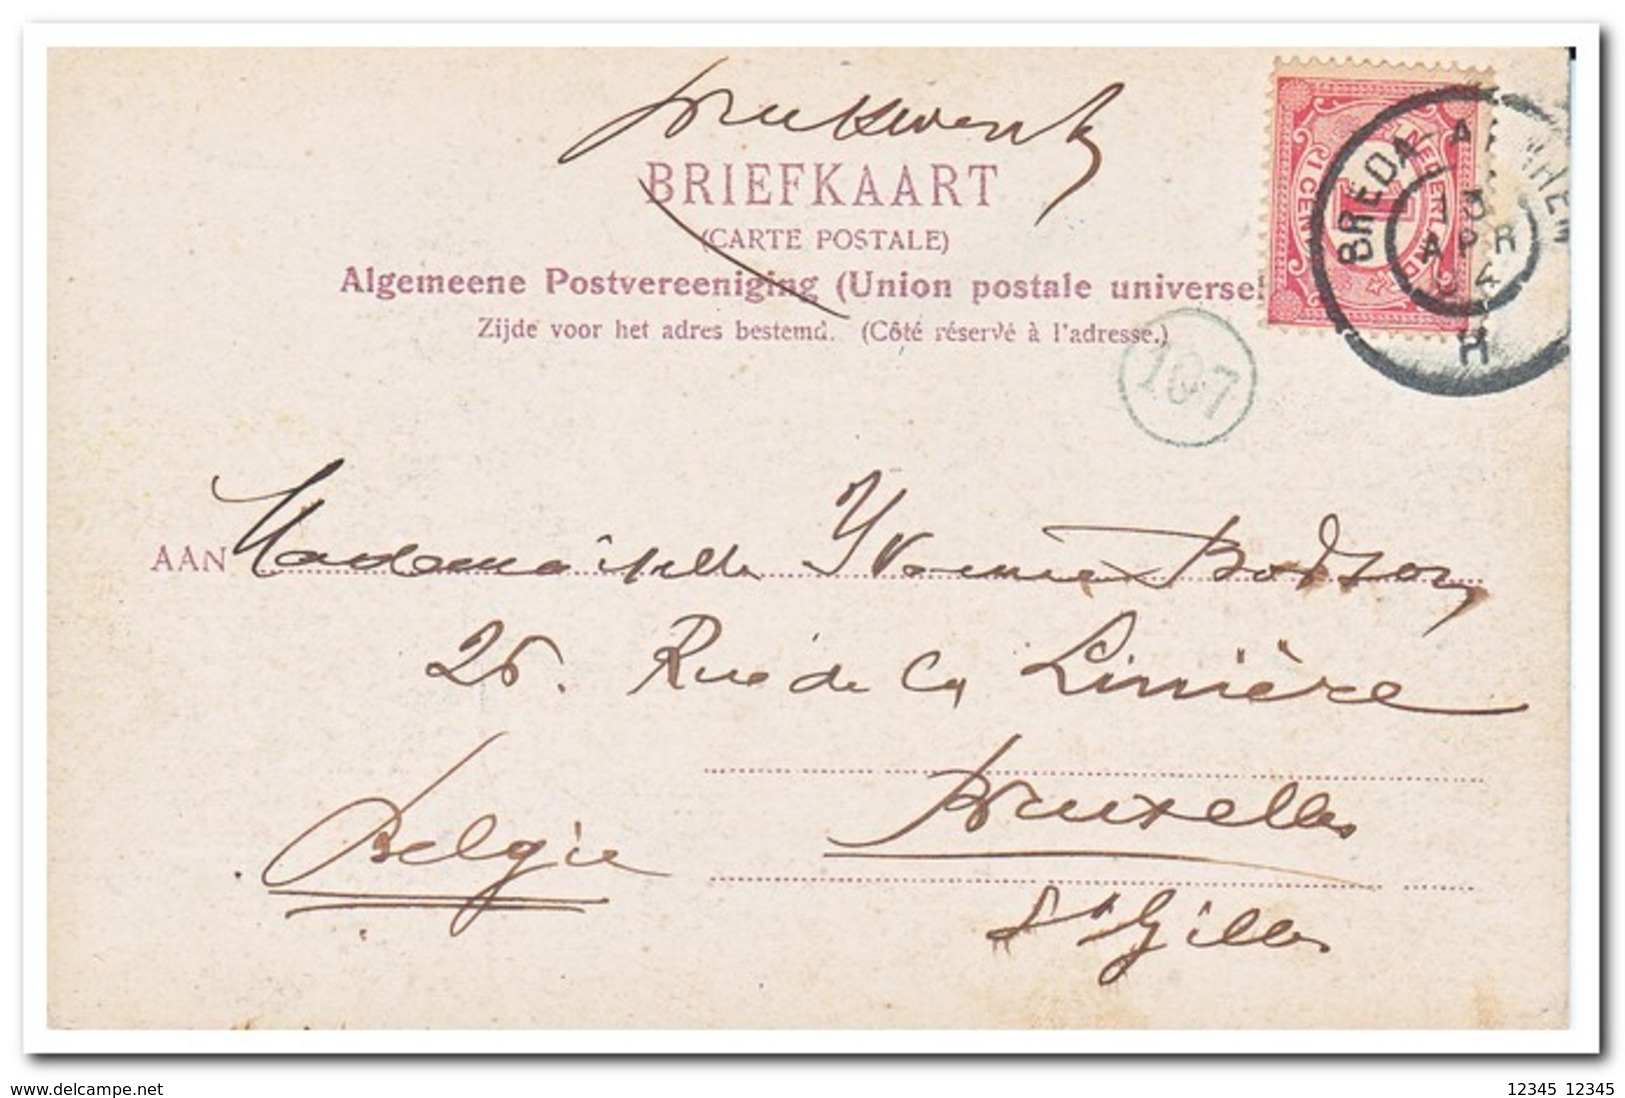 drukwerk
BRIEFKAART
(CARTE POSTALE)
Algemeene Postvereeniging (Union postale universel
Zijde voor het adres bestemd. (Côté réservé à l'adresse.)
NEDERLAND
1 CENT
1
BREDA - ARNHEM
APR
H
107
AAN Mademoiselle Yvonne Bodson
25. Rue de la Linière
Bruxelles
België
St Gilles
www.delcampe.net
12345 12345